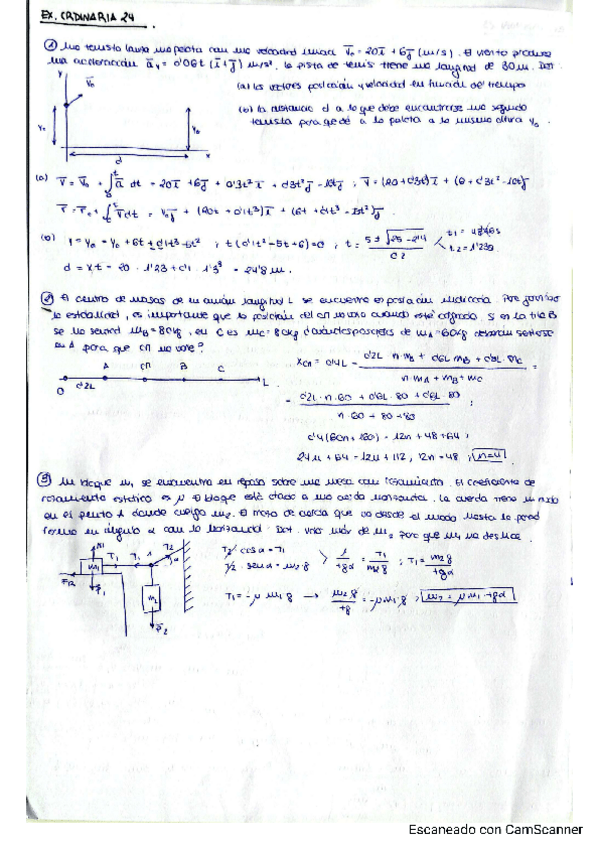 EX. ORDINARIA 24
① Un tenista lanza una pelota con una velocidad inicial v̄₀ = 20ī + 6j̄ (m/s). El viento produce
una aceleración āᵥ = 0'06t (ī + j̄) m/s². la pista de tenis tiene una longitud de 30m. Det
(a) los vectores posición y velocidad en función del tiempo
(b) la distancia d a la que debe encontrarse un segundo
tenista para que dé a la pelota a la misma altura y₀.
y
v̄₀
y₀
y₀
d
x
(a) v̄ = v̄₀ + ∫ ā dt = 20ī + 6j̄ + 0'3t²ī + 0'3t²j̄ - 10tj̄ ; v̄ = (20 + 0'3t²)ī + (6 + 0'3t² - 10t)j̄
r̄ = r̄₀ + ∫ v̄ dt = y₀j̄ + (20t + 0'1t³)ī + (6t + 0'1t³ - 5t²)j̄
(b) y = y₀ = y₀ + 6t + 0'1t³ - 5t² ; t(0'1t² - 5t + 6) = 0 ; t = 5 ± √25 - 2'4 / 0'2
t₂ = 1'23s
d = xt = 20 · 1'23 + 0'1 · 1'3³ = 24'8 m.
② El centro de masas de un avión longitud L se encuentra en posición
la estabilidad, es importante que la posición del CM no varíe cuando esté cargado. Si en la fila B
se ha sentado m_B = 80kg, en C es m_C = 80kg ¿cuántos pasajeros de m_A = 60kg deberán sentarse
en A para que CM no varíe?
O A CM B C L
0'2L
X_CM = 0'4L = 0'2L · n · m_A + 0'6L m_B + 0'8L m_C / n m_A + m_B + m_C
= 0'2L · n · 60 + 0'6L · 80 + 0'8L · 80 / n · 60 + 80 + 80 ;
0'4 (60n + 160) = 12n + 48 + 64 ;
24n + 64 = 12n + 112 ; 12n = 48 ; n = 4
③ Un bloque m₁ se encuentra en reposo sobre una mesa con rozamiento. El coeficiente de
rozamiento estático es μ. El bloque está atado a una cuerda horizontal. La cuerda tiene un nudo
en el punto A donde cuelga m₂. El trozo de cuerda que va desde el nudo hasta la pared
forma un ángulo α con la horizontal. Det. valor máx de m₂ para que m₁ no deslice.
N₁
m₁
T₁
T₁
A
T₂
α
F_R
P̄₁
m₂
P̄₂
T₂ cos α = T₁
T₂ · sen α = m₂ g
1 / tg α = T₁ / m₂ g ; T₁ = m₂ g / tg α
T₁ = -μ m₁ g → m₂ g / tg = -μ m₁ g ; m₂ = μ m₁ tg α
Escaneado con CamScanner